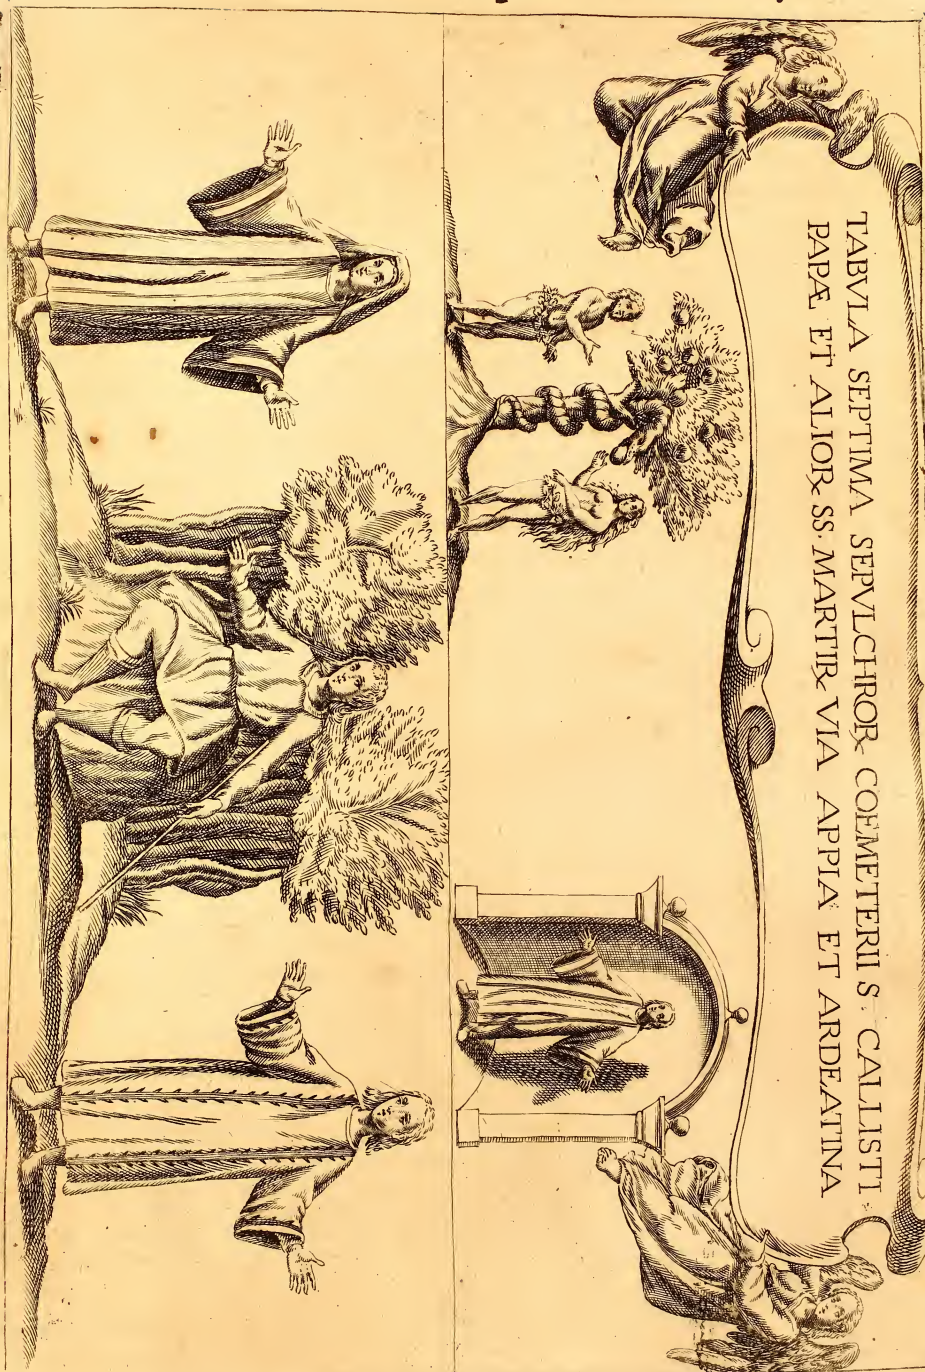 TABVLA SEPTIMA SEPVLCHROℝ COEMETERII S· CALLISTI·
PAPÆ ET ALIOℝ SS· MARTIℝ VIA APPIA ET ARDEATINA